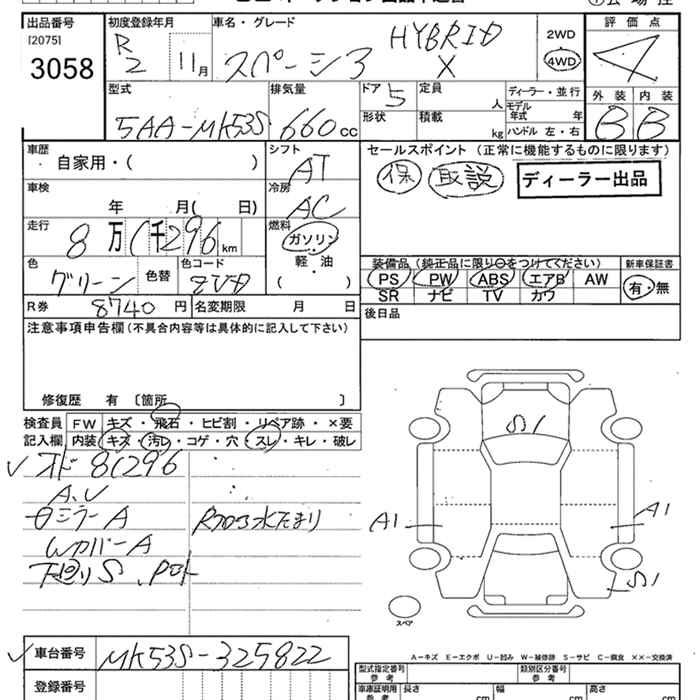 出品番号 初度登録年月 車名・グレード 評価点
[2075] R HYBRID 2WD
3058 2 11月 スペーシア X 4WD 4
型式 排気量 ドア 定員 ディーラー・並行 外装 内装
5AA-MK53S 660cc 5 人 モデル年式 年 B B
形状 積載 kg ハンドル 左・右
車歴 シフト セールスポイント (正常に機能するものに限ります)
自家用・( ) AT 保 取説 ディーラー出品
車検 冷房
年 月( 日) AC
走行 燃料
8万(千296km ガソリン 装備品 (純正品に限り○をつけてください) 新車保証書
色 色コード 軽・油 PS PW ABS エアB AW 有・無
グリーン 色替 ( ) SR ナビ TV カワ
R券 8740円 名変期限 月 日 後日品
注意事項申告欄(不具合内容等は具体的に記入して下さい)
修復歴 有 〔箇所 〕
検査員 FW キズ・飛石・ヒビ割・リペア跡・×要 S1
記入欄 内装 キズ・汚レ・コゲ・穴・スレ・キレ・破レ
オド 81296
A.U
ミラーA 水たまり A1 A1
WカバーA
下廻りS S1
スペア
車台番号 MK53S-325822 A−キズ E−エクボ U−凹み W−補修跡 S−サビ C−腐食 ××−交換済
型式指定番号 参考 類別区分番号 参考
登録番号 車庫証明用 参考 長さ cm 幅 cm 高さ cm